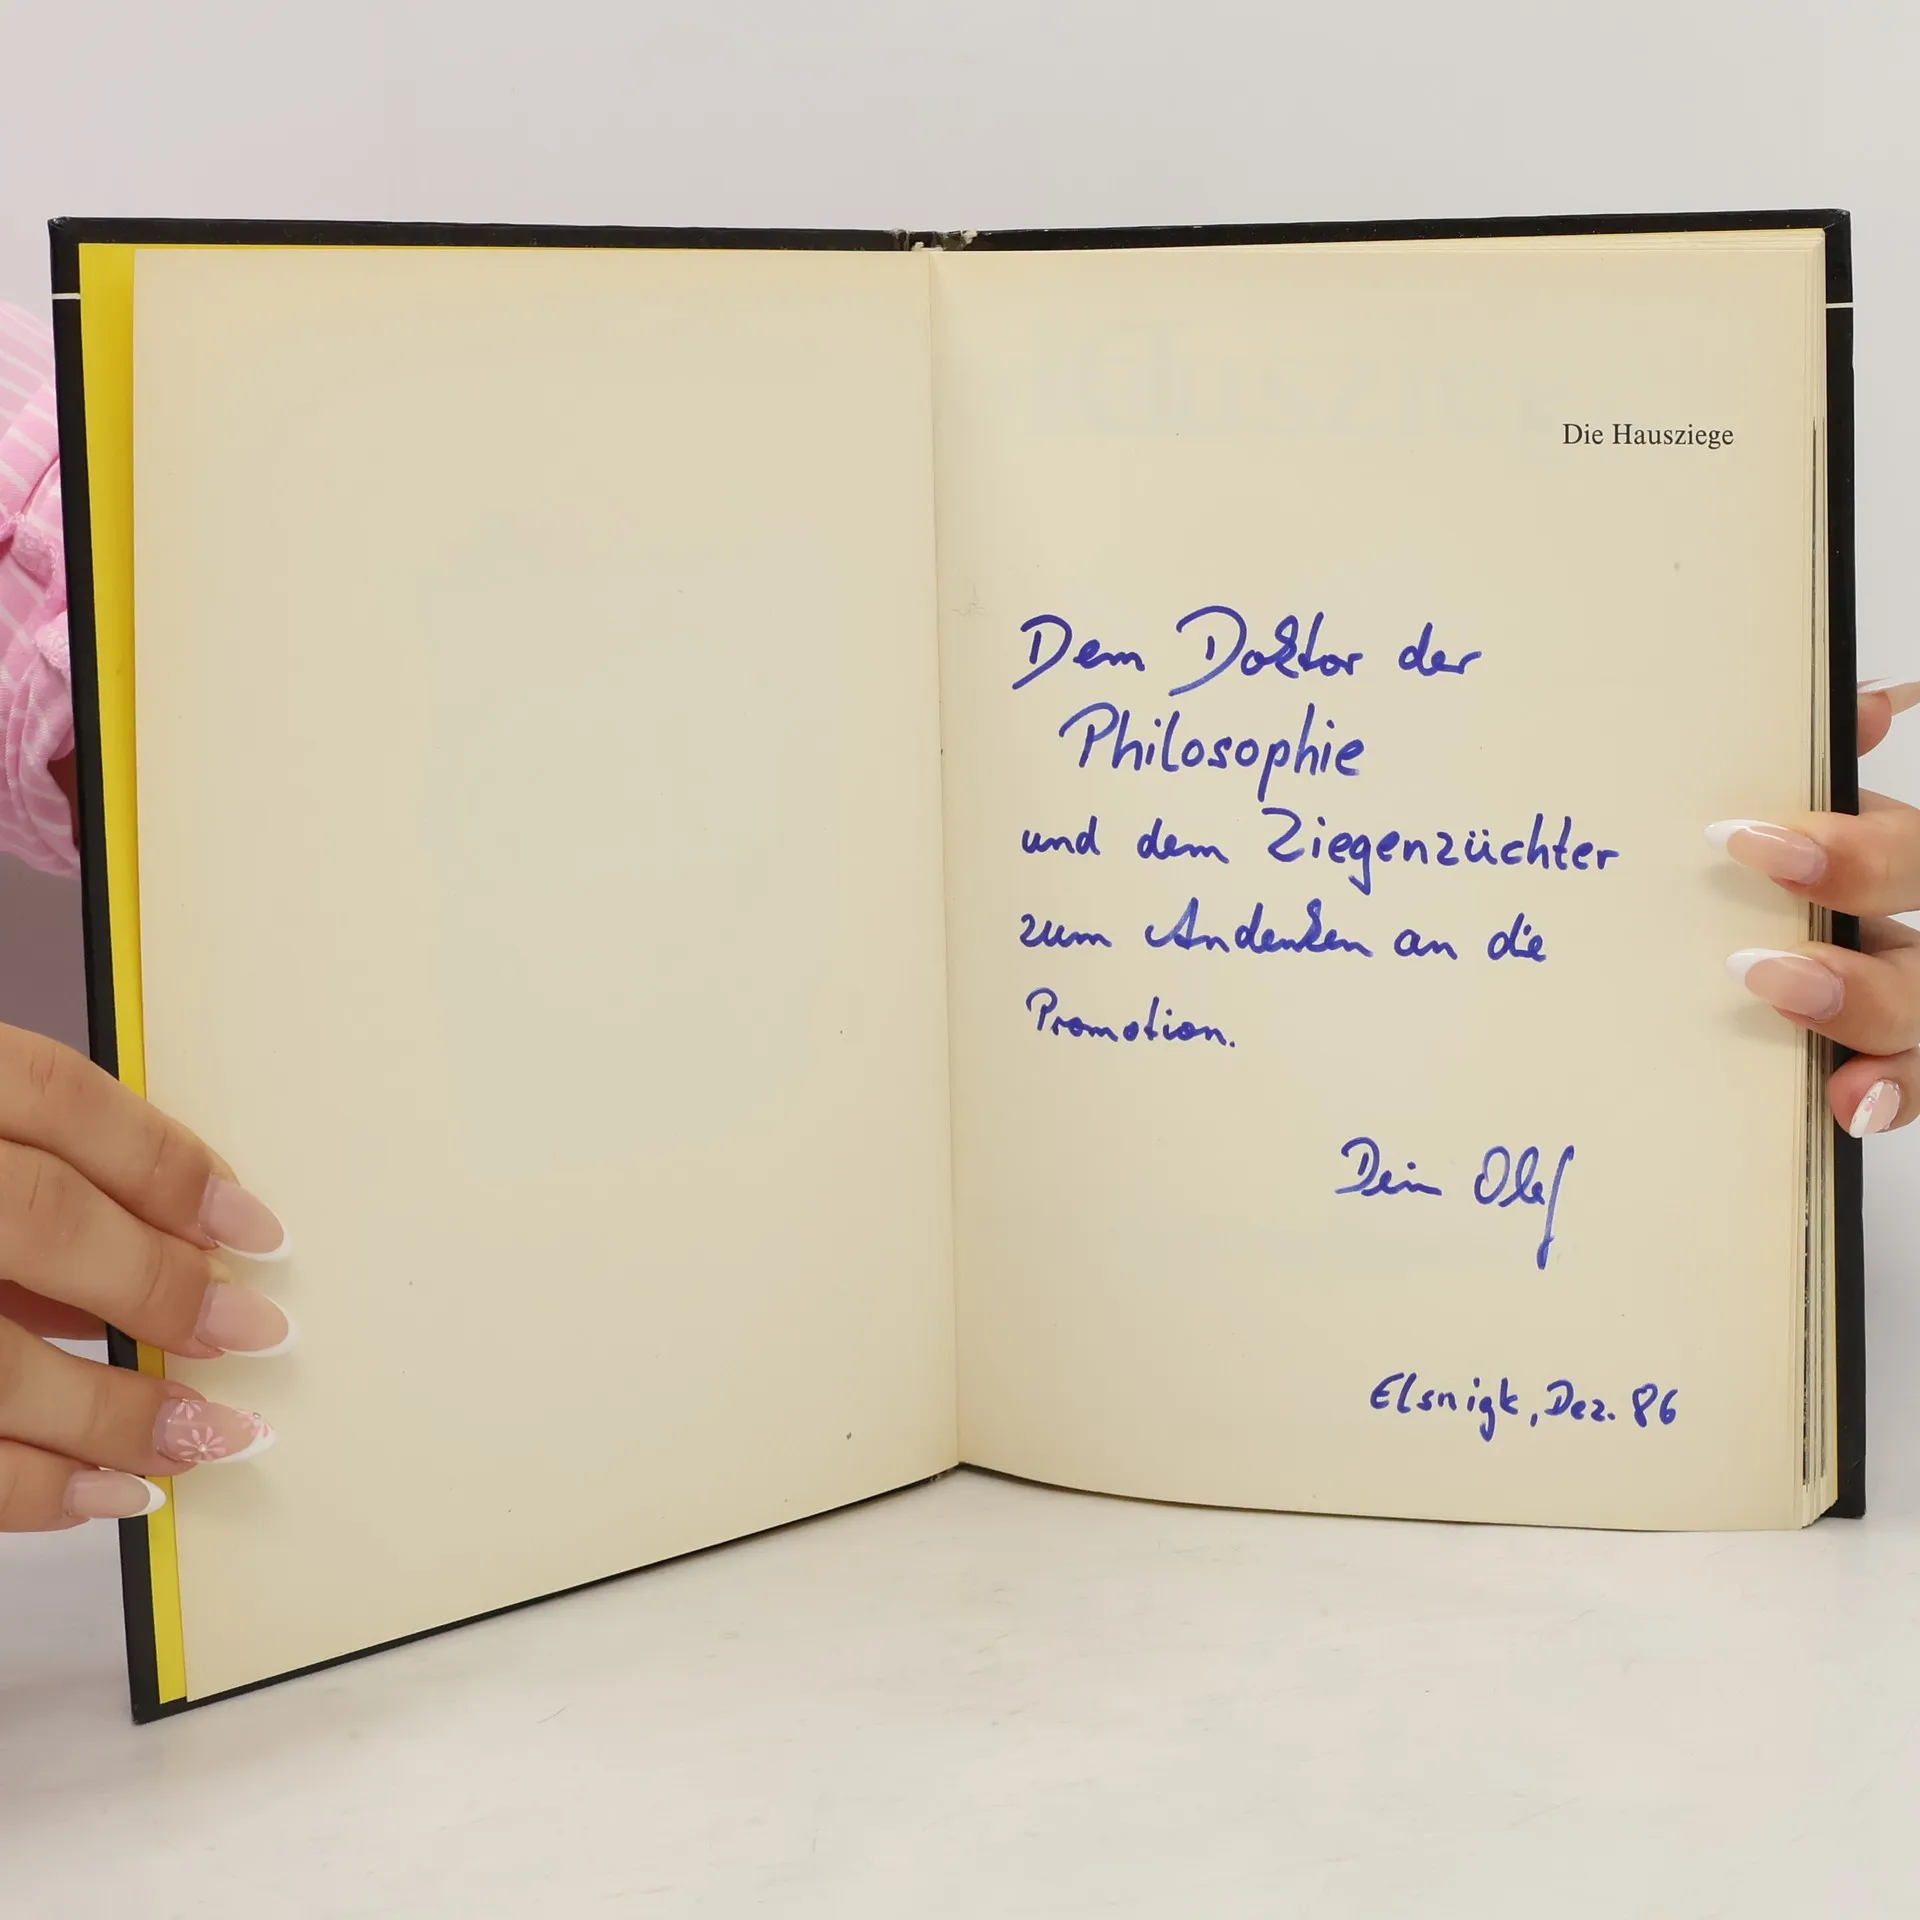 Die Hausziege
Dem Doktor der
Philosophie
und dem Ziegenzüchter
zum Andenken an die
Promotion.
Dein Olaf
Elsnigk, Dez. 86